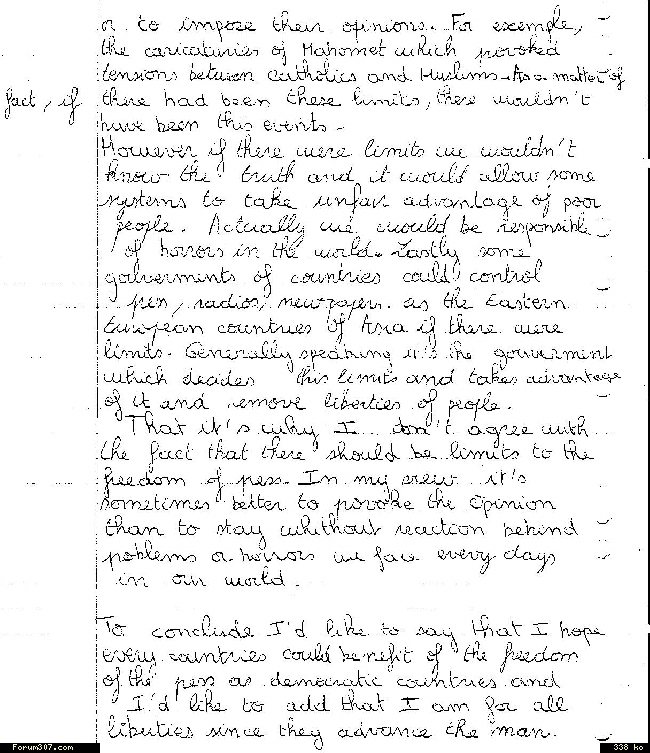 or to impose their opinions. For exemple,
the caricaturies of Mahomet which provoked
tensions between catholics and Muslims. As a matter of
fact, if there had been these limits, there wouldn't
have been this events.
However if there were limits we wouldn't
know the truth and it would allow some
systems to take unfair advantage of poor
people. Actually we would be responsible
of horrors in the world. Lastly some
goluverments of countries could control
pen, radios, newspapers as the Eastern
European countries of Asia if there were
limits. Generally speaking it's the gouverment
which decides this limits and takes advantage
of it and remove liberties of people.
That it's why I don't agree with
the fact that there should be limits to the
freedom of press. In my view it's
sometimes better to provoke the opinion
than to stay whithout reaction behind
problems or horrors we face every days
in our world.
To conclude I'd like to say that I hope
every countries could benefit of the freedom
of the press as democratic countries and
I'd like to add that I am for all
liberties since they advance the man.
Forum307.com
338 ko